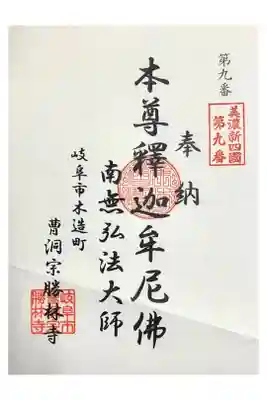 第九番
美濃新四國
第九番
奉納
本尊釋迦牟尼佛
南無弘法大師
岐阜市木造町
曹洞宗勝林寺
岐阜市
勝林寺